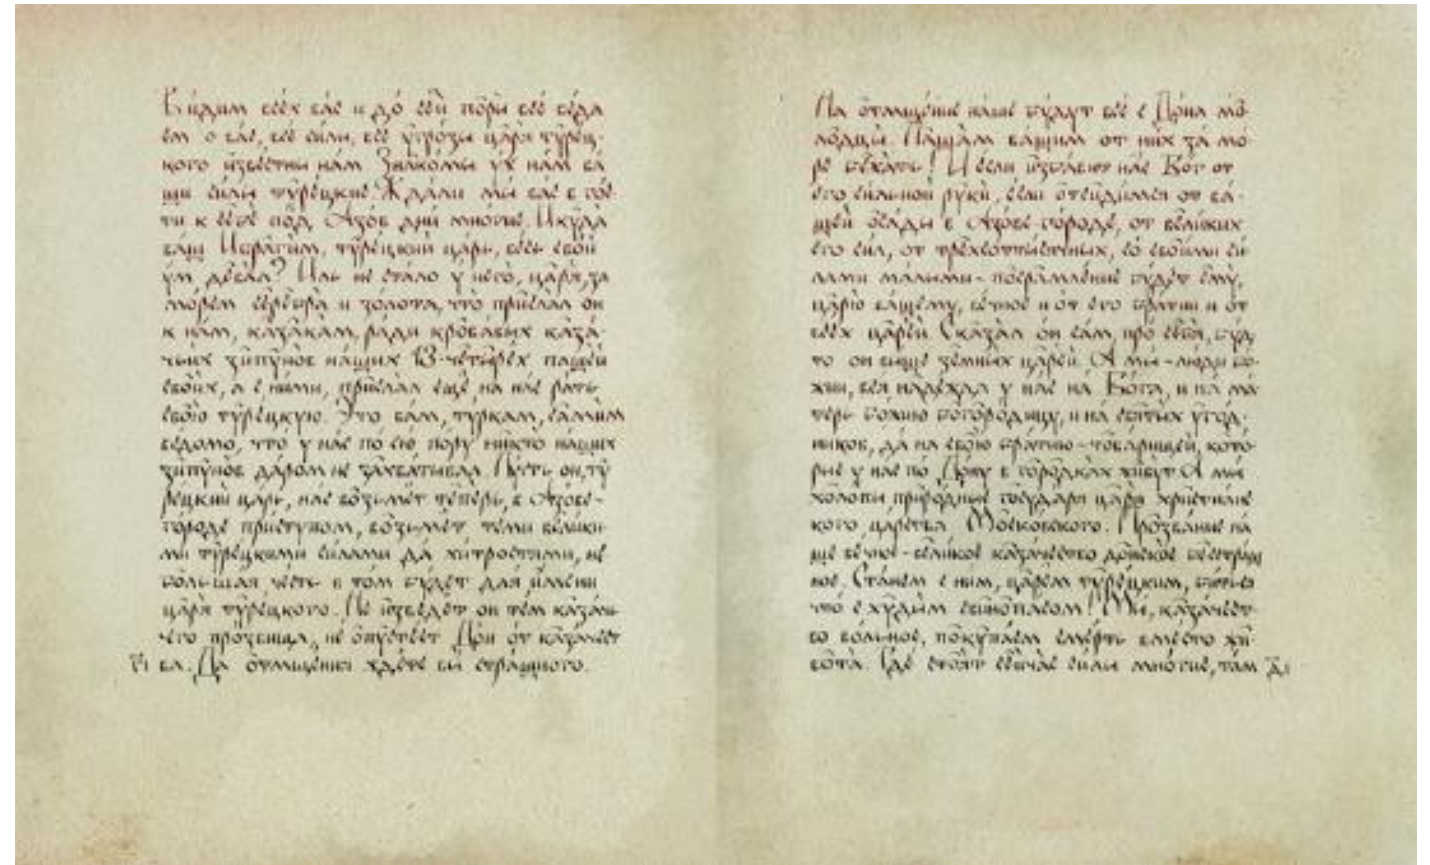 Видим всех вас и до сей поры всё веда
ем о вас, все силы, все угрозы царя турец-
кого известны нам. Знакомы уж нам ва
ши силы турецкие. Ждали мы вас в гос
ти к себе под Азов дни многие. И куда
ваш Ибрагим, турецкий царь, весь свой
ум девал? Иль не стало у него, царя, за
морем серебра и золота, что прислал он
к нам, казакам, ради кровавых каза-
чьих зипунов наших 13-четырёх пашей
своих, а с ними, прислал ещё на нас рать
свою турецкую. Это вам, туркам, самим
ведомо, что у нас по сю пору никто наших
зипунов даром не захватывал. Пусть он, ту
рецкий царь, нас возьмёт теперь в Азове-
городе приступом, возьмёт теми велики
ми турецкими силами да хитростями, не
большая честь в том будет для имени
царя турецкого. Не изведёт он тем казачь
его прозвища, не опустеет Дон от казачест
ва. Да отмщения ждёте вы страшного.
На отмщение наше будут все с Дона мо
лодцы. Пашам вашим от них за мо
ре бежать! И если избавит нас Бог от
его сильной руки, если отсидимся от ва-
шей осады в Азове городе, от великих
его сил, от трёхсоттысячных, со своими си
лами малыми - посрамление будет ему,
царю вашему, вечное и от его братии и от
всех царей. Сказал он сам, про себя, буд
то он выше земных царей. А мы - люди бо-
жии, вся надежда у нас на Бога, и на ма
терь божию богородицу, и на святых угод-
ников, да на свою братию-товарищей, кото-
рые у нас по Дону в городках живут. А мы
холопы природные государя царя христианс
кого царства Московского. Прозвание на
ше вечное - великое казачество донское бесстраш
ное. Станем с ним, царём турецким, биться
что с худым свинопасом! Мы, казачест
во вольное, покупаем смерть вместо жи
вота. Где стоят сейчас силы многие, там